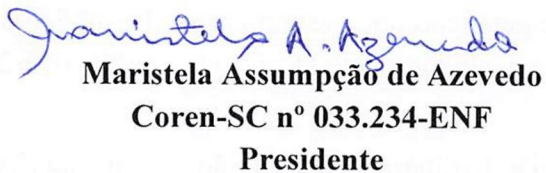 Maristela A. Azevedo
Maristela Assumpção de Azevedo
Coren-SC nº 033.234-ENF
Presidente